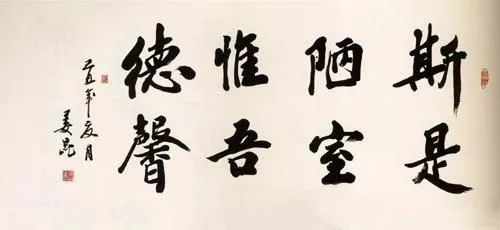 斯是
陋室
惟吾
德馨
夏月
姜昆